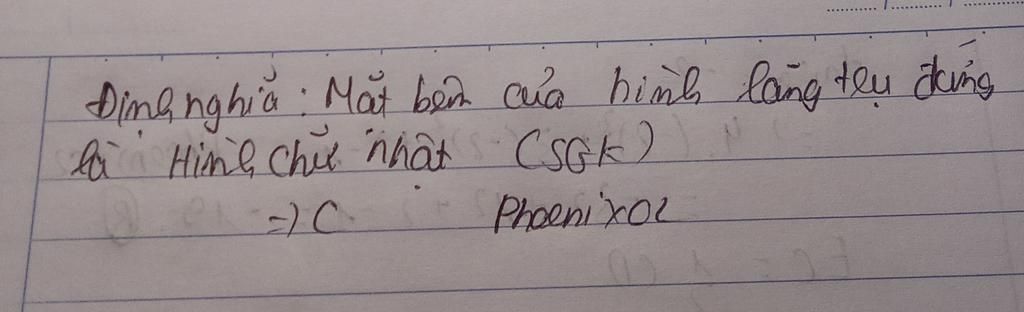 Định nghĩa: Mặt bên của hình lăng trụ đứng
là Hình chữ nhật (SGK)
=) C Phoenix02